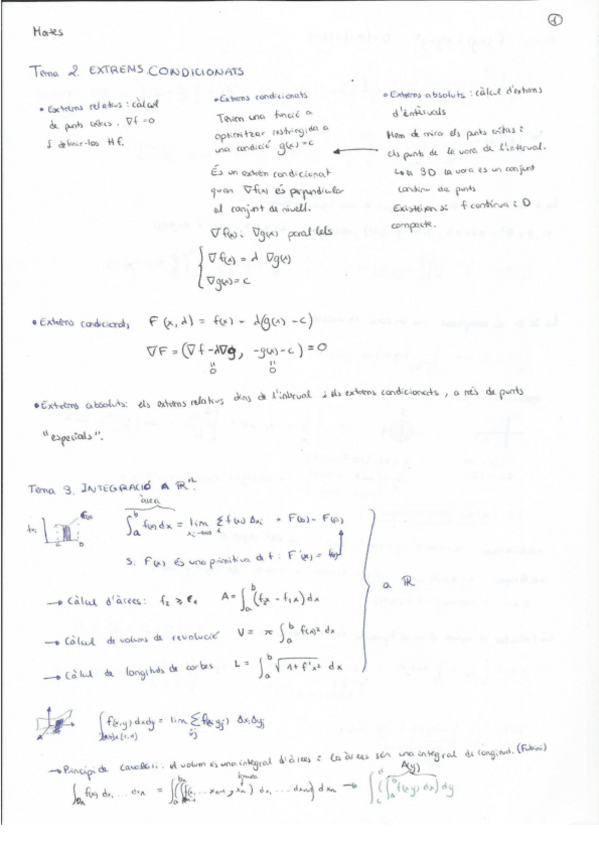 Mates
1
Tema 2. EXTREMS CONDICIONATS
• Extrems relatius: càlcul
de punts crítics, ∇f = 0
i definir-los Hf.
• Extrems condicionats
Tenim una funció a
optimitzar restringida a
una condició g(x) = c
És un extrem condicionat
quan ∇f(x) és perpendicular
al conjunt de nivell.
∇f(x) i ∇g(x) paral·lels
∇f(x) = λ ∇g(x)
∇g(x) = c
• Extrems absoluts: càlcul d'extrems
d'intervals
Hem de mirar els punts crítics i
els punts de la vora de l'interval.
↳ a 3D la vora és un conjunt
continu de punts
Existeixen si f contínua i D
compacte.
• Extrems condicionats F(x, λ) = f(x) - λ(g(x) - c)
∇F = (∇f - λ∇g, -g(x) - c) = 0
0 0
• Extrems absoluts: els extrems relatius dins de l'interval i els extrems condicionats, a més de punts
"especials".
Tema 3. INTEGRACIÓ A ℝⁿ
àrea
∫_a^b f(x) dx = lim Σ f(x) Δxi = F(b) - F(a)
Si F(x) és una primitiva de f: F'(x) = f(x)
a ℝ
→ Càlcul d'àrees: f2 ≥ f1 A = ∫_a^b (f2x - f1x) dx
→ Càlcul de volums de revolució V = π ∫_a^b f(x)² dx
→ Càlcul de longituds de corbes L = ∫_a^b √(1 + f'x²) dx
∫ f(x,y) dxdy = lim Σ f(xi yj) Δxi Δyj
→ Principi de Cavalieri: el volum és una integral d'àrees i les àrees són una integral de longitud. (Fubini)
A(y)
∫ f(x) dx1 ... dxn = → ∫_c^d (∫_a^b f(x,y) dx) dy